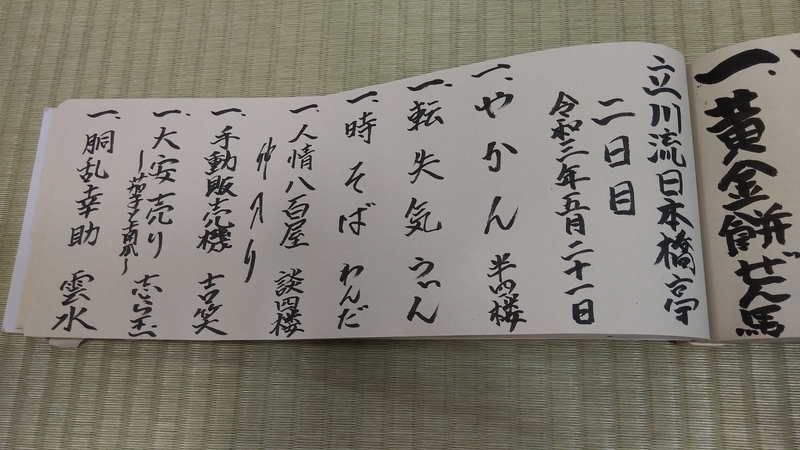 一、黄金餅 ぜん馬
立川流日本橋亭
二日目
令和三年五月二十一日
一、やかん 半四楼
一、転失気 らいん
一、時そば わんだ
一、人情八百屋 談四楼
仲入り
一、手動販売機 吉笑
一、大安売り 志らら
一、胴乱幸助 雲水